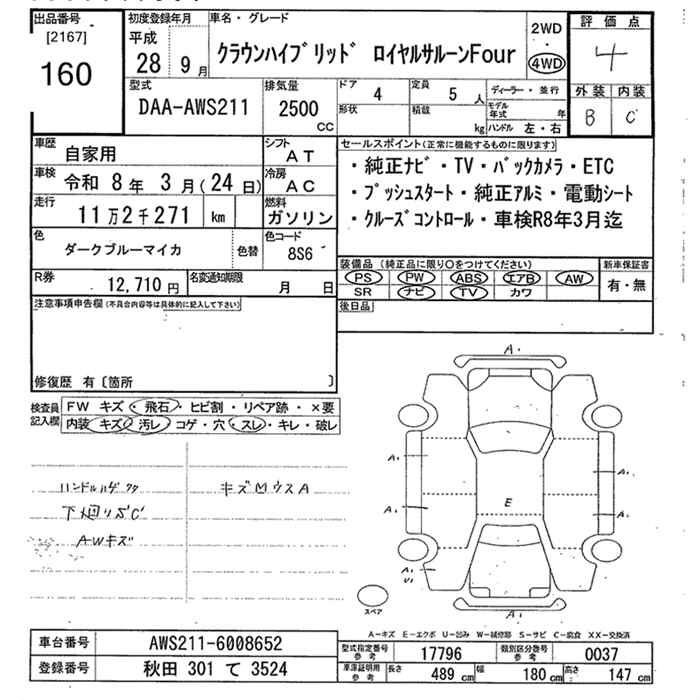 出品番号
[2167]
160
初度登録年月
平成
28 9月
車名・グレード
クラウンハイブリッド ロイヤルサルーンFour
2WD
4WD
評価点
4
外装 内装
B C
型式
DAA-AWS211
排気量
2500
CC
ドア 4
定員 5 人
形状
積載 kg
ディーラー・並行
モデル年式 年
ハンドル 左・右
車歴 自家用
シフト AT
車検 令和 8年 3月(24日)
冷房 AC
走行 11万2千271 km
燃料 ガソリン
色 ダークブルーマイカ 色替
色コード 8S6
R券 12,710円
名変通知期限 月 日
セールスポイント(正常に機能するものに限ります)
・純正ナビ・TV・バックカメラ・ETC
・プッシュスタート・純正アルミ・電動シート
・クルーズコントロール・車検R8年3月迄
装備品 (純正品に限り○をつけてください)
PS PW ABS エアB AW
SR ナビ TV カワ
新車保証書
有・無
後日品
注意事項申告欄(不具合内容等は具体的に記入して下さい)
修復歴 有〔箇所 〕
検査員記入欄
FW キズ・飛石・ヒビ割・リペア跡・×要
内装 キズ・汚レ・コゲ・穴・スレ・キレ・破レ
ハンドルハゲ
下廻りサビC
AWキズ
キズ凹ウスA
A・
A₁
A₁
A₁
A₁
E
A₁
U₁
A₁
スペア
A-キズ E-エクボ U-凹み W-補修跡 S-サビ C-腐食 XX-交換済
車台番号 AWS211-6008652
登録番号 秋田 301 て 3524
型式指定番号参考 17796
類別区分番号参考 0037
車庫証明用参考 長さ 489 cm 幅 180 cm 高さ 147 cm